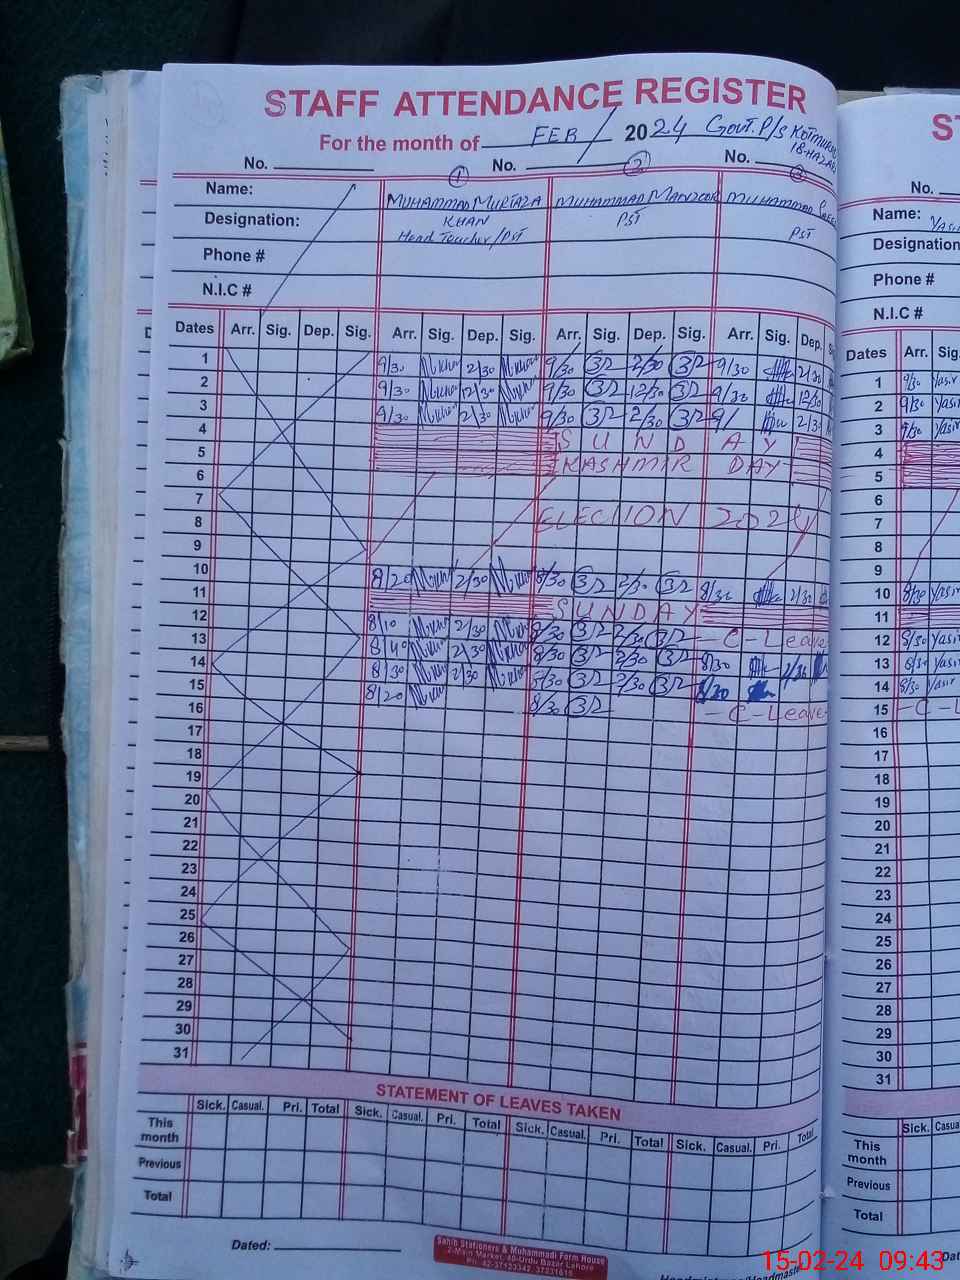 STAFF ATTENDANCE REGISTER
For the month of FEB / 2024 GOVT. P/S
18-HAZARI
No. No. No.
① ② ③
Name: MUHAMMAD MURTAZA MUHAMMAD MANZOOR MUHAMMAD
Designation: KHAN PST
Head Teacher/PST PST
Phone #
N.I.C #
Dates Arr. Sig. Dep. Sig. Arr. Sig. Dep. Sig. Arr. Sig. Dep. Sig. Arr. Sig. Dep.
1 9/30 Mkhan 2/30 Mkhan 9/30 2/30 9/30 2/30
2 9/30 Mkhan 12/30 Mkhan 9/30 12/30 9/30 12/30
3 9/30 Mkhan 2/30 Mkhan 9/30 2/30 9/ 2/30
4 SUNDAY
5 KASHMIR DAY
6
7
8 ELECTION 2024
9
10 8/20 Mkhan 2/30 Mkhan 8/30 2/30 8/30 2/30
11 SUNDAY
12 8/10 Mkhan 2/30 Mkhan 8/30 2/30 - C - Leave
13 8/40 Mkhan 2/30 Mkhan 8/30 2/30 8/30 2/30
14 8/30 Mkhan 2/30 Mkhan 8/30 2/30 8/30
15 8/20 Mkhan 8/30 - C - Leave
16
17
18
19
20
21
22
23
24
25
26
27
28
29
30
31
STATEMENT OF LEAVES TAKEN
Sick. Casual. Pri. Total Sick. Casual. Pri. Total Sick. Casual. Pri. Total Sick. Casual. Pri. Total
This month
Previous
Total
Dated:
Sahib Stationers & Muhammadi Form House
2-Main Market, 40-Urdu Bazar Lahore
Ph: 42-37123342, 37231615
ST
No.
Name: Yasir
Designation
Phone #
N.I.C #
Dates Arr. Sig.
1 9/30 Yasir
2 9/30 Yasir
3 9/30 Yasir
4
5
6
7
8
9
10 8/30 Yasir
11
12 8/30 Yasir
13 8/30 Yasir
14 8/30 Yasir
15 -C-L
16
17
18
19
20
21
22
23
24
25
26
27
28
29
30
31
Sick. Casua
This month
Previous
Total
15-02-24 09:43